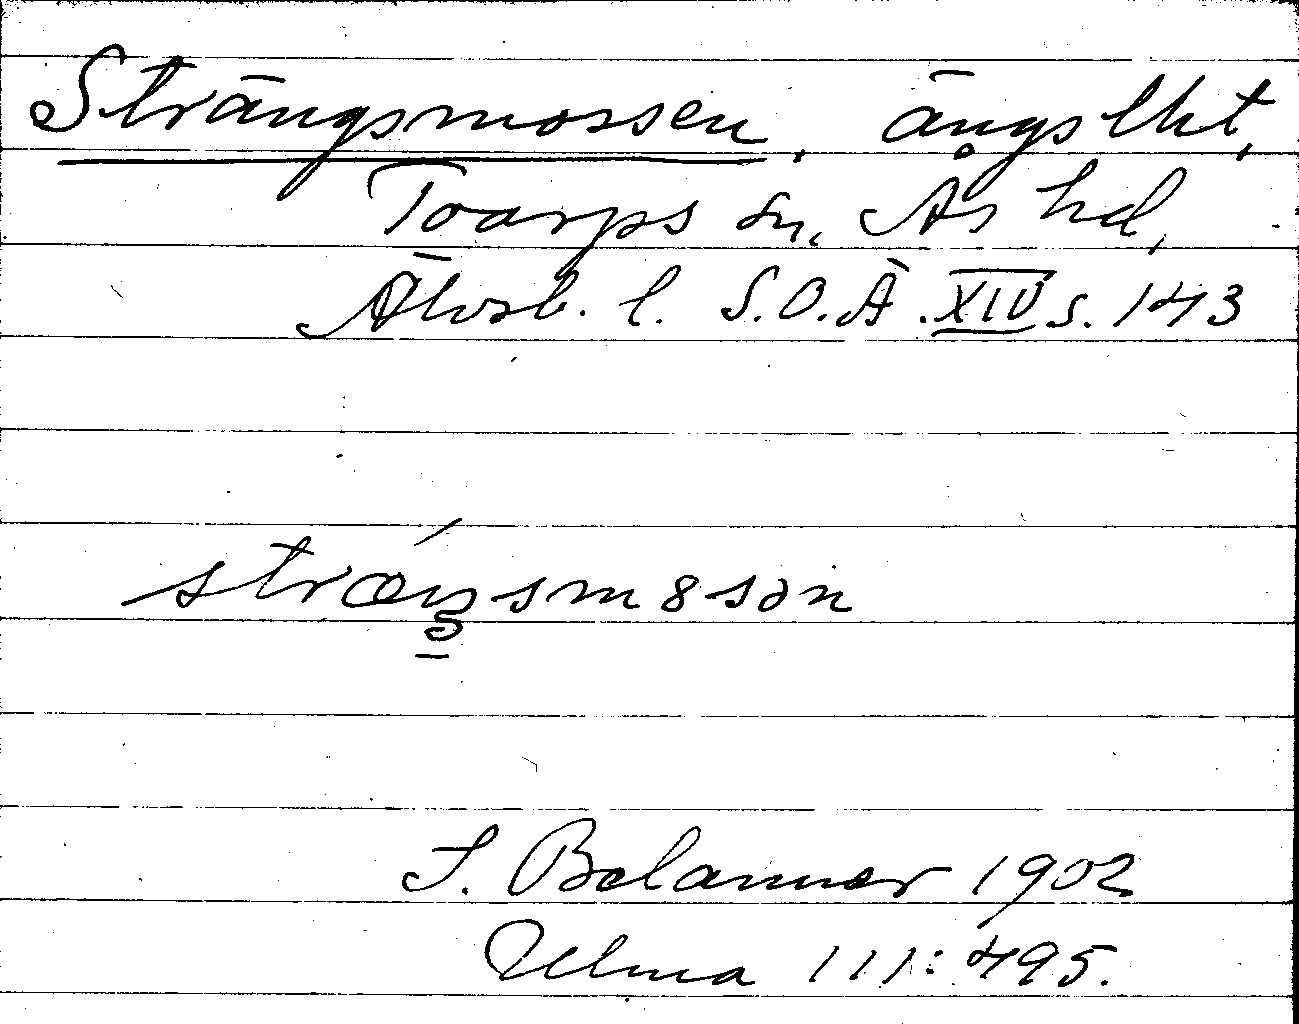 Strängsmossen, ängslht,
Toarps sn, Ås hd,
Älvsb. l. S.O.Ä. XIV s. 143
stræŋsmȣsən
S. Belanner 1902
Ulma 111:495.